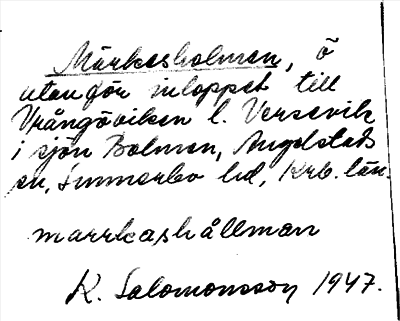 Märkesholmen, ö
utanför inloppet till
Vrångöviken l. Versevik
i sjön Bolmen, Angelstads
sn, Sunnerbo hd, Krb. län.
marrkashållman
K. Salomonsson 1947.